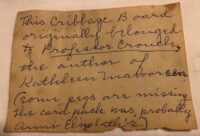 This Cribbage Board
originally belonged
to Professor
the author of
Kathleen Mavourneen
(some pegs are missing
the card pack was probably
Aunt Elizabeth's)